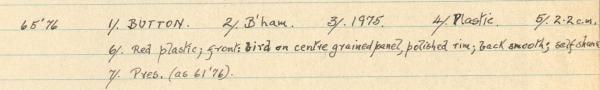 65'76 1/. BUTTON. 2/. B'ham. 3/. 1975. 4/. Plastic. 5/. 2.2 c.m.
6/. Red plastic; front: bird on centre grained panel, polished rim; back smooth; self shank
7/. Pres. (as 61'76).